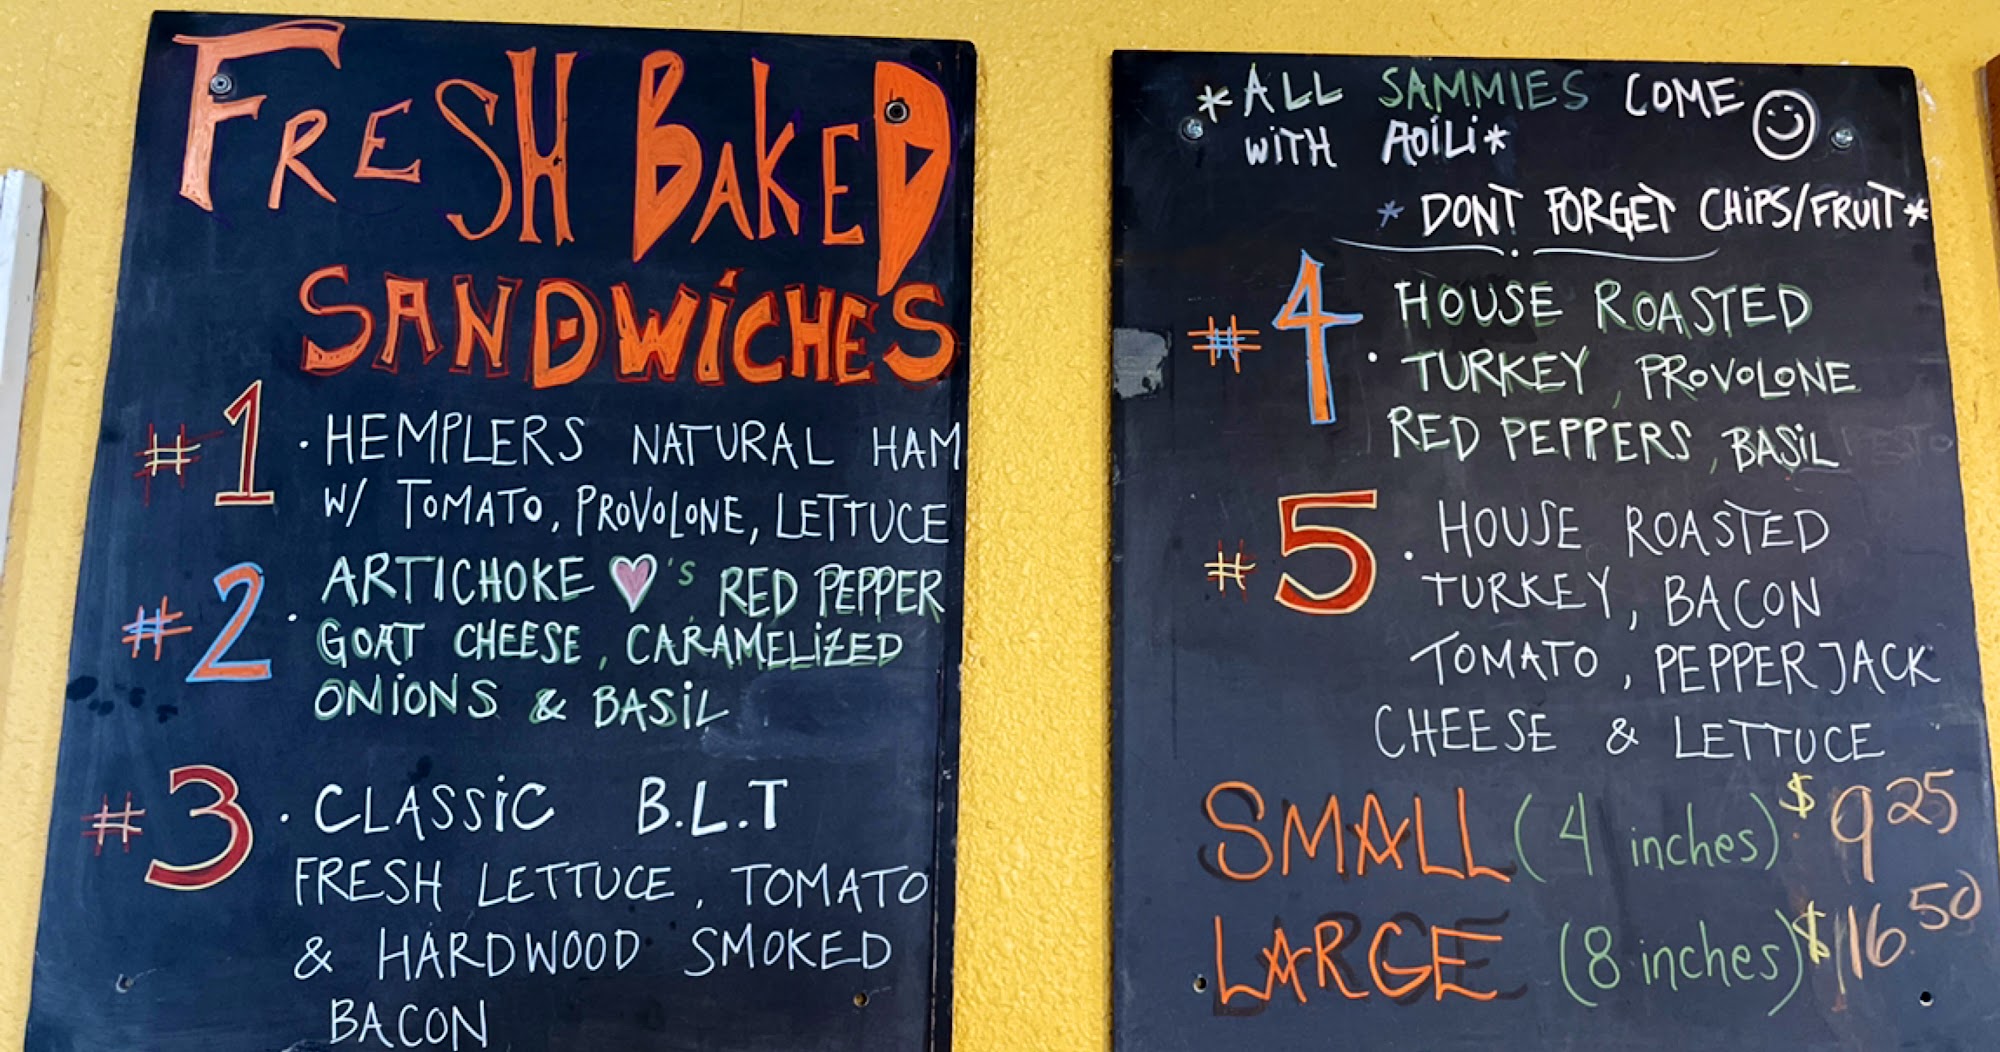 FRESH BAKED
SANDWICHES
#1 · HEMPLERS NATURAL HAM
W/ TOMATO, PROVOLONE, LETTUCE
#2 · ARTICHOKE ♡'s RED PEPPER
GOAT CHEESE, CARAMELIZED
ONIONS & BASIL
#3 · CLASSIC B.L.T
FRESH LETTUCE, TOMATO
& HARDWOOD SMOKED
BACON
*ALL SAMMIES COME
WITH AOILI* ☺
* DONT FORGET CHIPS/FRUIT*
#4 · HOUSE ROASTED
TURKEY, PROVOLONE
RED PEPPERS, BASIL
#5 · HOUSE ROASTED
TURKEY, BACON
TOMATO, PEPPER JACK
CHEESE & LETTUCE
SMALL (4 inches) $9.25
LARGE (8 inches) $16.50